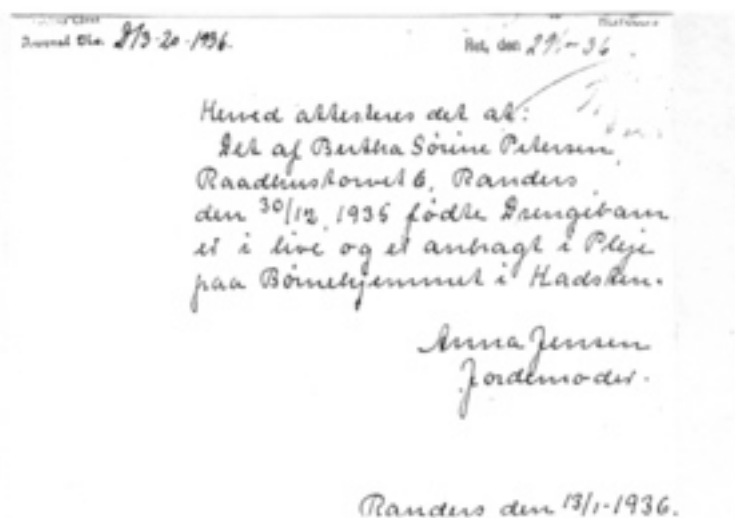 Journal Nr. D/3-20-1936.
Ret, den 29/1-36
Herved attesteres det at:
Det af Bertha Sörine Petersen,
Raadhustorvet 6, Randers,
den 30/12 1935 fødte Drengebarn
er i live og er anbragt i Pleje
paa Børnehjemmet i Hadsten.
Anna Jensen
Jordemoder.
Randers den 13/1-1936.